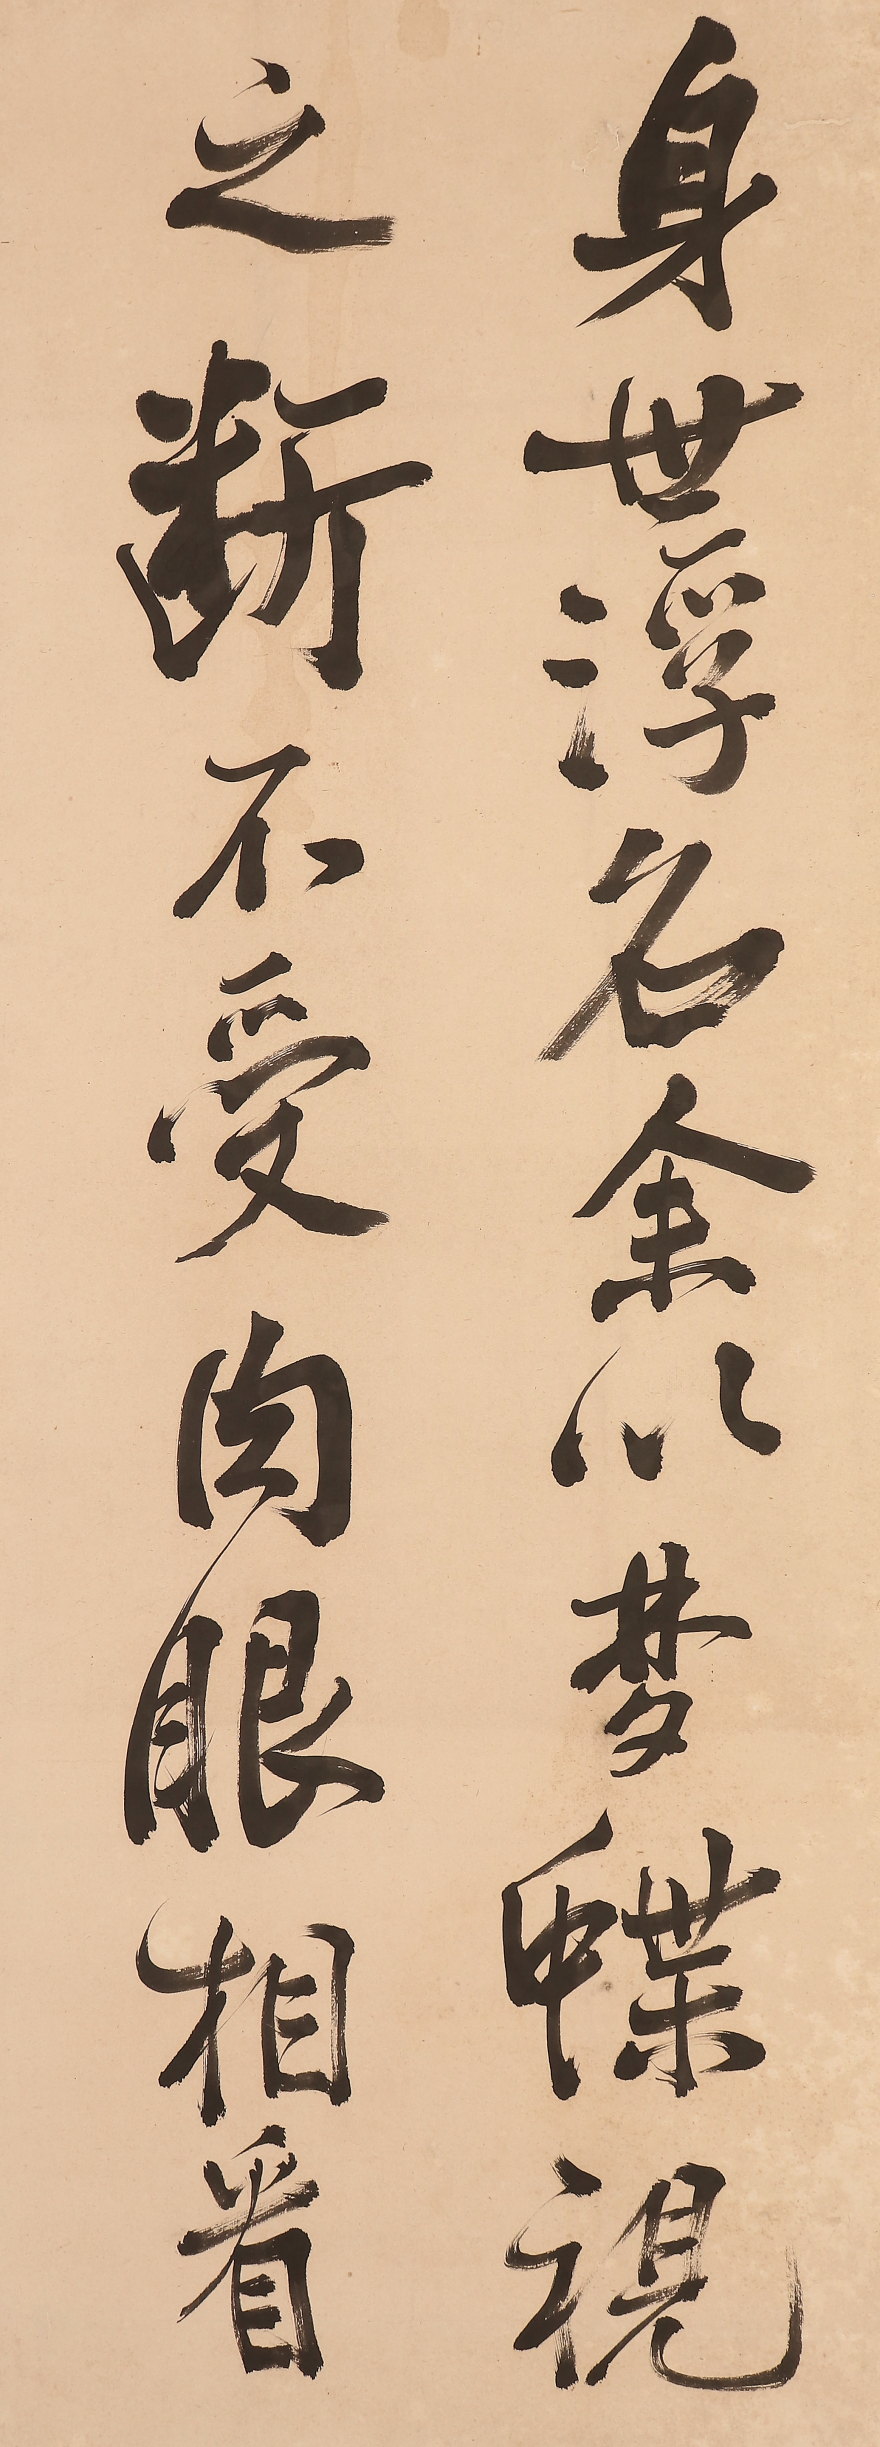 身世浮名余以梦蝶視
之断不受肉眼相看